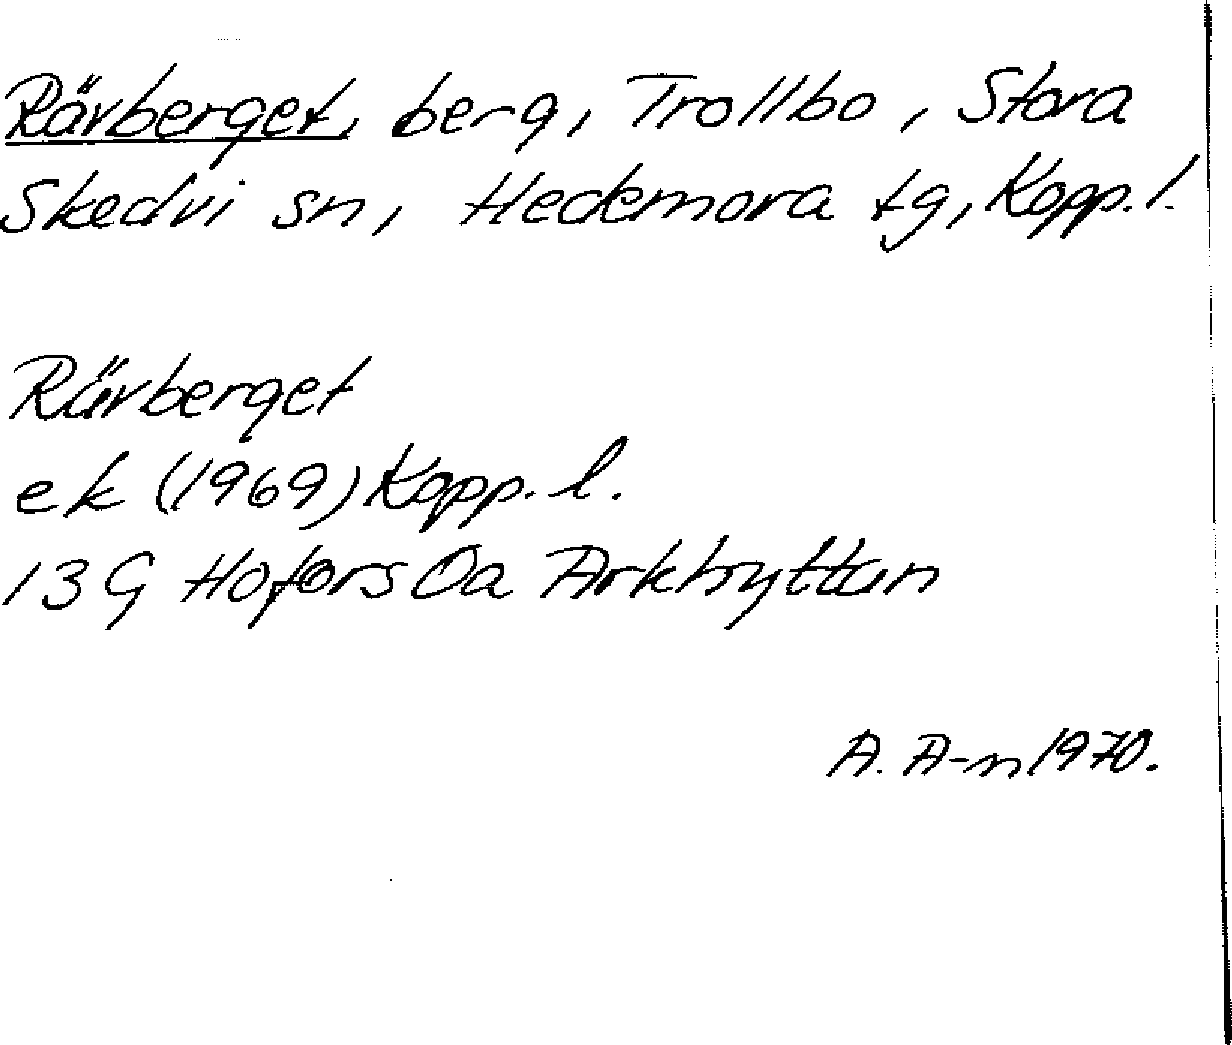 Rävberget, berg, Trollbo, Stora
Skedvi sn, Hedemora tg, Kopp. l.
Rävberget
ek (1969) Kopp. l.
13 G Hofors 0a Arkhyttan
A. A-n 1970.